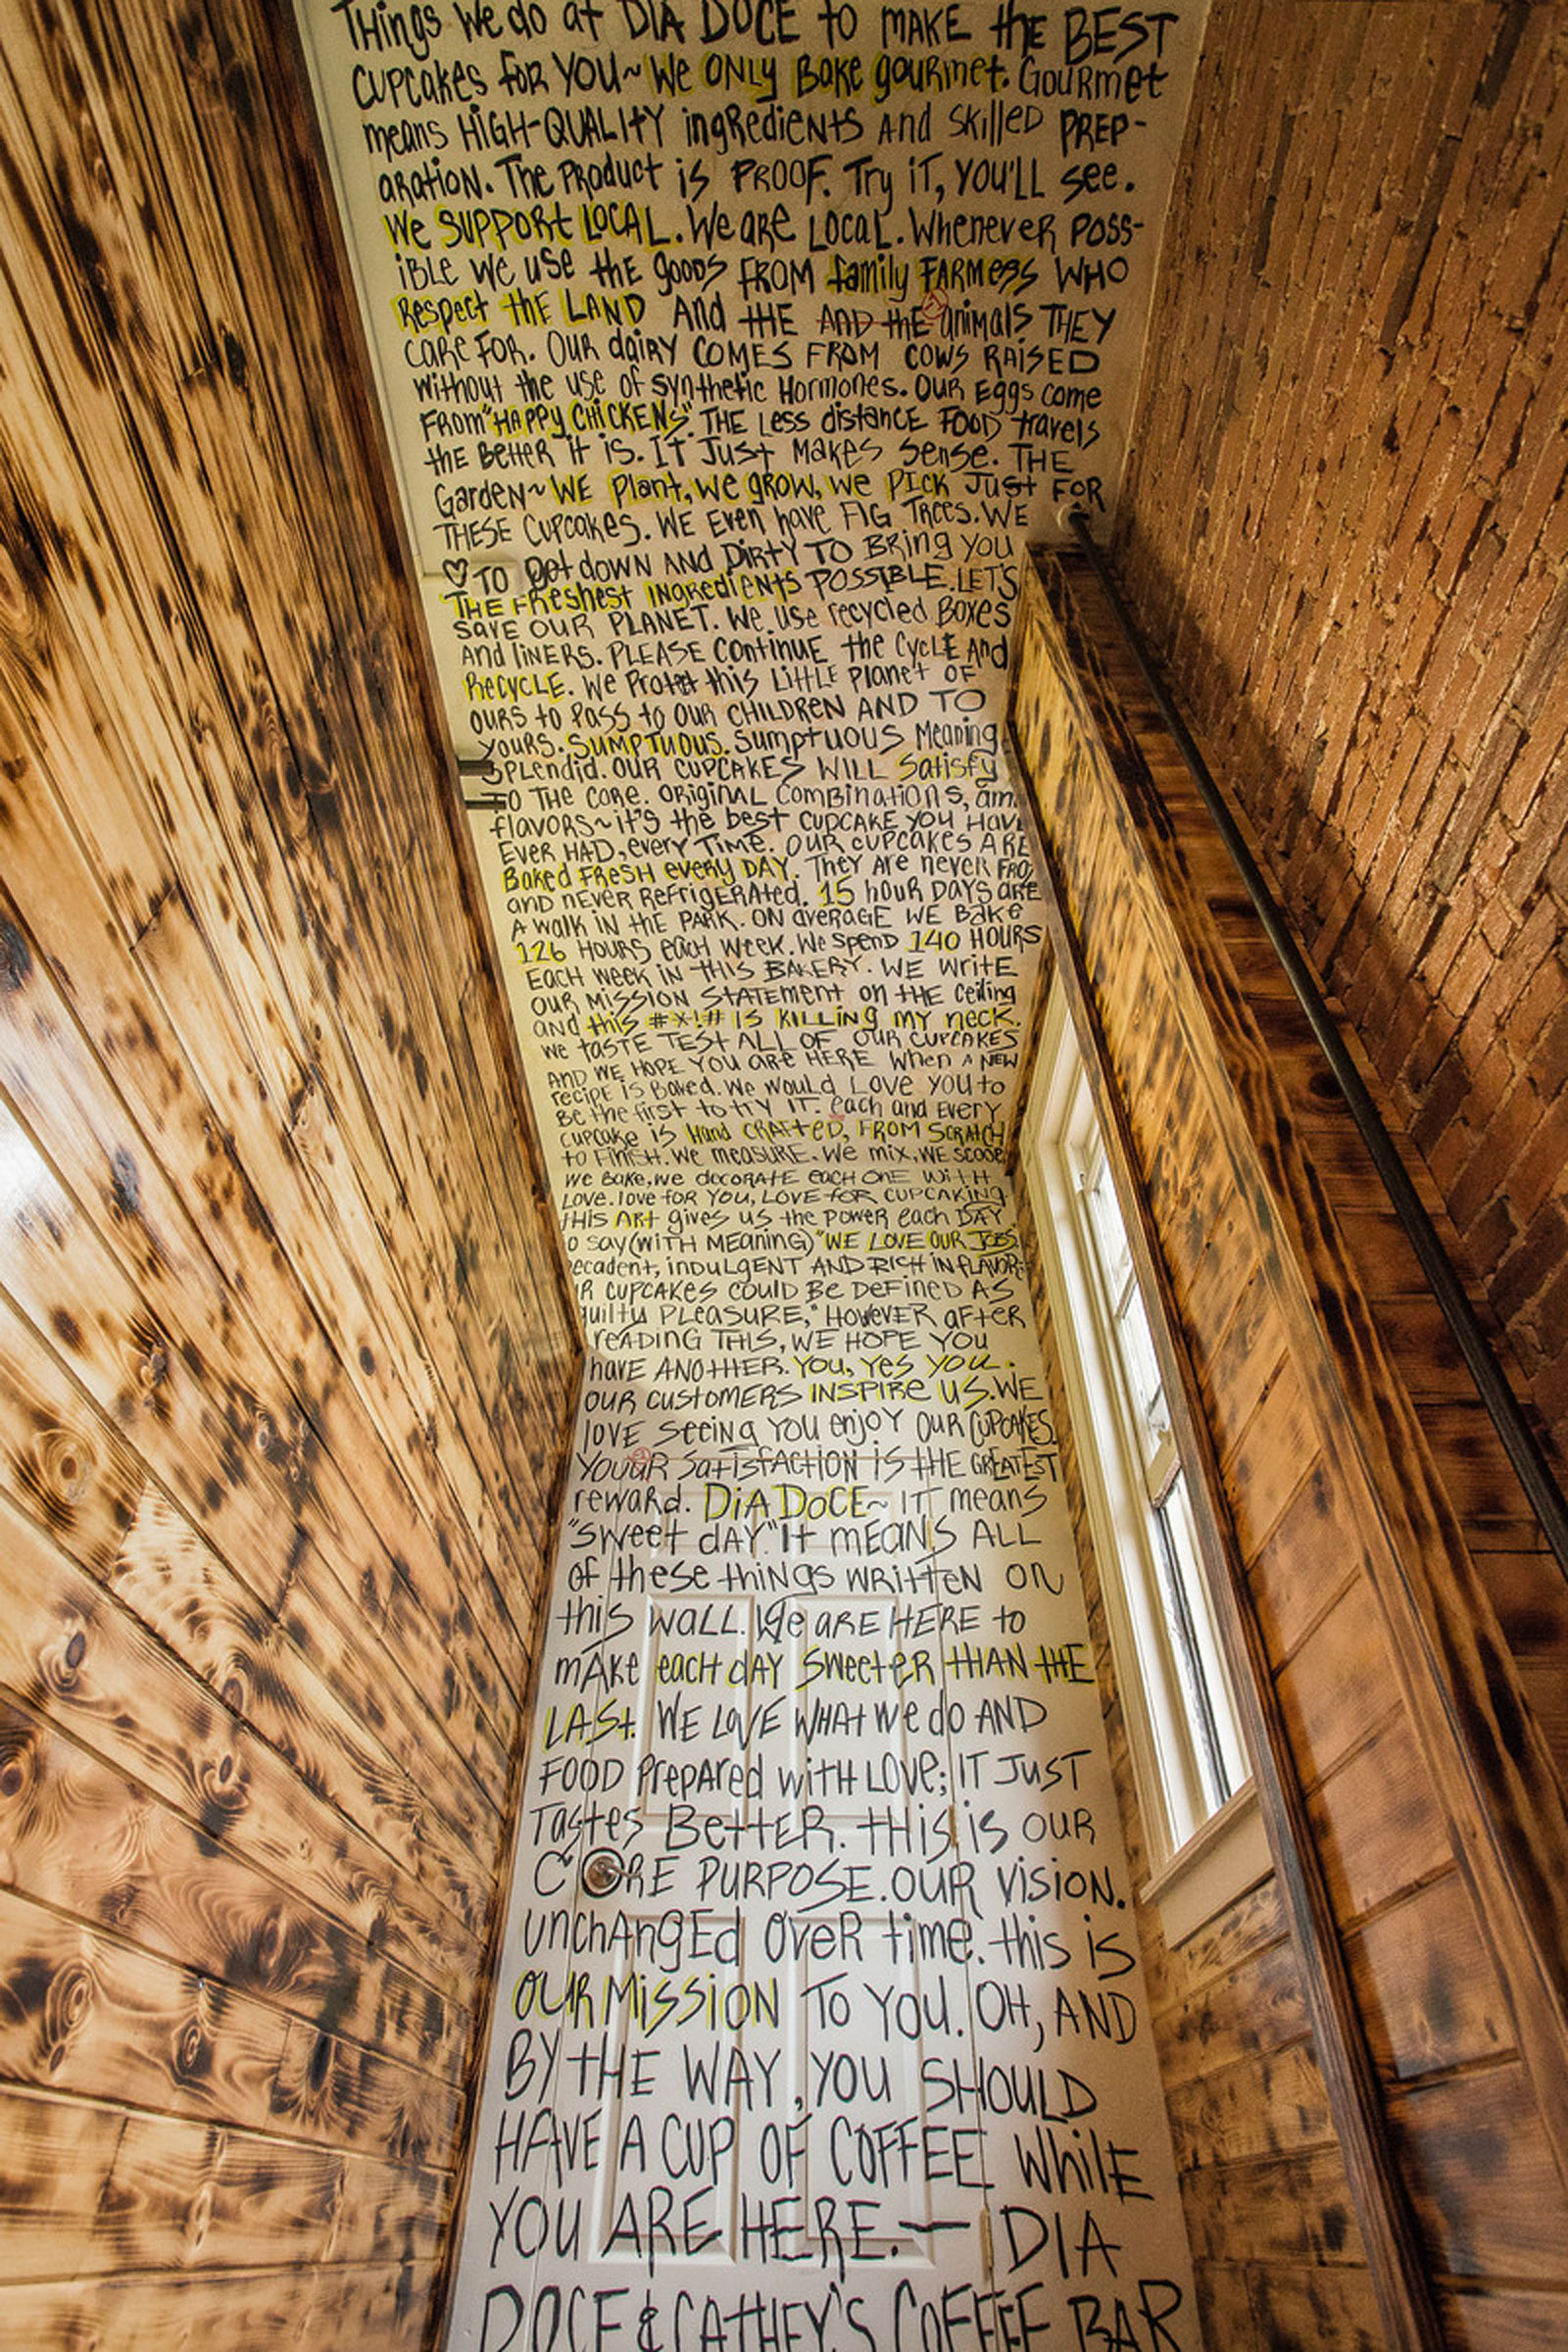 Things We do at DIA DOCE to MAKE the BEST
CUPCAKES FOR YOU~ We ONLY BAKE gourmet. Gourmet
means HIGH-QUALITY ingRedients And skilled PREP-
ARATION. The PRODUCT is PROOF. Try iT, YOU'LL see.
We SUPPORT LOCAL. We are LOCAL. Whenever POSS-
iBLE We use the goods FROM family FARMERS WHO
Respect the LAND And tHE And the animals THEY
CARE FOR. OUR dairy COMES FROM COWS RAISED
without the use of synthetic Hormones. OUR Eggs come
FROM "HAPPY CHICKENS". THE Less distance FOOD travels
the Better it is. IT Just Makes Sense. THE
Garden~ WE Plant, we grow, we PICK Just FOR
THESE Cupcakes. WE Even have FIG Trees. WE
♡ TO get down AND DIRTY TO BRing you
THE FReshest INGREDIENTS POSSIBLE. LET'S
SAVE OUR PLANET. We use recycled Boxes
And liNERS. PLEASE Continue the CYCLE And
RECYCLE. We Protect this Little Planet OF
OURS to Pass to OUR CHILDREN AND TO
YOURS. SUMPTUOUS. Sumptuous Meaning
SPLendid. OUR CUPCAKES WILL Satisfy
TO THE CORE. ORIGINAL Combinations,
flavors~ it's the best CUPCAKE YOU HAVE
EVER HAD, every TIME. OUR CUPCAKES ARE
BAKed FRESH every DAY. They Are never
and never Refrigerated. 15 hour DAYS are
A walk in the PARK. ON average WE BAKE
126 HOURS each week. We spend 140 HOURS
EACH WEEK IN THIS BAKERY. WE write
OUR MISSION STATEMENT on the Ceiling
and this #*!# IS KILLING MY neck.
We TASTE TEST ALL OF OUR CUPCAKES
AND WE HOPE YOU are HERE When A NEW
recipe is Baked. We would LOVE you to
Be the first to try IT. Each and every
cupcake is Hand CRAFTED, FROM SCRATCH
to FINISH. We measure. We mix, WE SCOOP
we BAKE, we decorate each ONE WITH
LOVE. love for YOU, LOVE for CUPCAKING.
THIS ART gives us the power each DAY
O SAY (WITH Meaning) "WE LOVE OUR JOBS.
ecadent, INDULGENT AND RICH IN FLAVOR.
R CUPCAKES COULD Be DeFINED AS
guilty PLEASURE," However AFTER
reading THIS, WE HOPE YOU
have ANOTHER. YOU, YES YOU.
OUR CUSTOMERS INSPIRE US. WE
love seeing YOU enjoy OUR CUPCAKES.
YOUUR SATISFACTION is tHE GREATEST
reward. DiA DOCE~ IT means
"sweet dAY." It mEANS ALL
of these things WRITTEN ON
this WALL. We ARE HERE to
mAKe each dAY Sweeter THAN tHE
LASt. WE LOVE WHAt We do AND
FOOD PrepARed with LOVE; IT JUST
Tastes BETTER. tHis is OUR
CORE PURPOSE. OUR VISION.
UnchAnged Over time. this is
OUR MISSION TO YOU. OH, AND
BY THE WAY, YOU SHOULD
HAVE A CUP OF COFFEE While
YOU ARE HERE. — DIA
DOCE & CATHEY'S COFFEE BAR